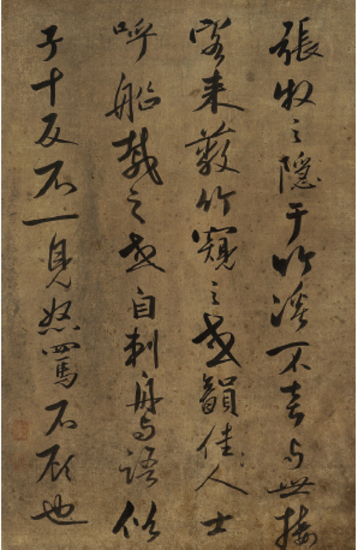 張牧之隱于竹溪不喜与世接
客来蔽竹窺之或韻佳人士
呼船載之或自刺舟与語俗
子十反不一見怒罵不顧也